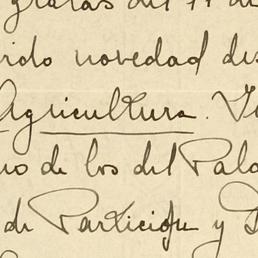 gratas del 11 de
rido novedad des
Agricultura. I
no de los del Pala
de Particips y D